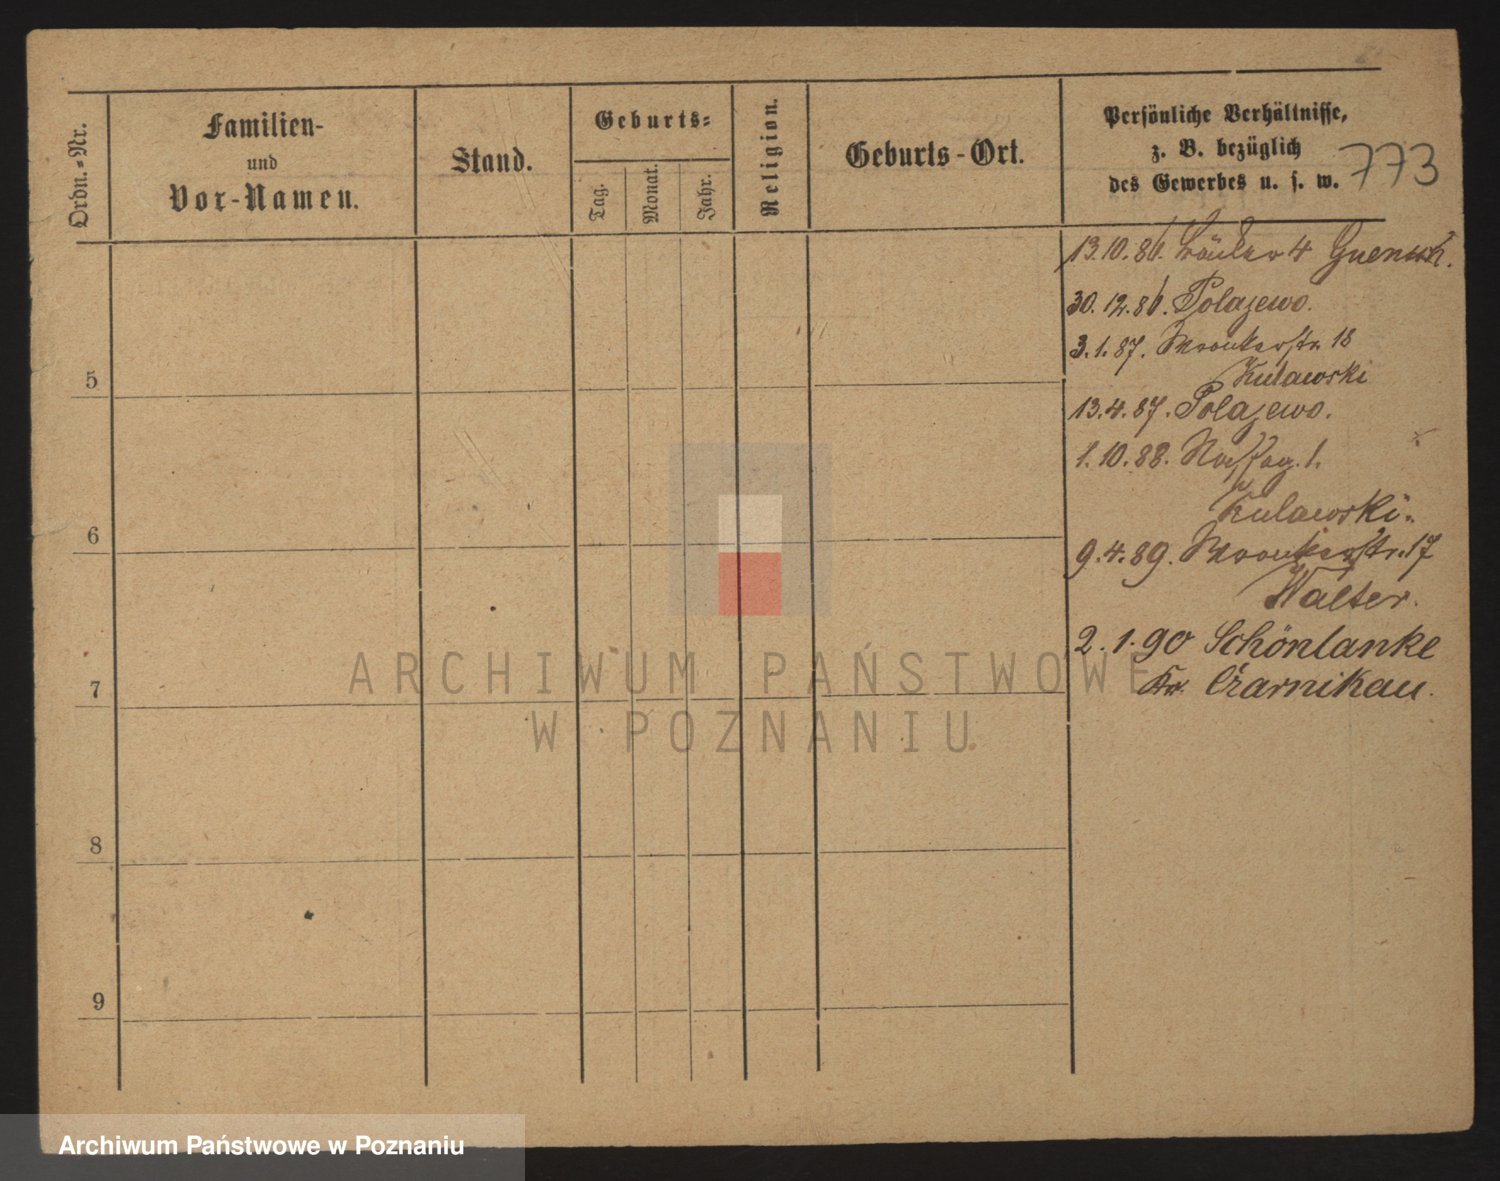 Ordn.-Nr.
Familien-
und
Vor-Namen.
Stand.
Geburts-
Tag.
Monat.
Jahr.
Religion.
Geburts-Ort.
Persönliche Verhältnisse,
z. B. bezüglich
des Gewerbes u. s. w.
773
13.10.86. 4
30.12.86. Polajewo.
3.1.87. Wronkerstr. 18
Kulawski
13.4.87. Polajewo.
1.10.88. 1.
Kulawski.
9.4.89. Wronkerstr. 17
Walter.
2.1.90 Schönlanke
Kr. Czarnikau.
5
6
7
8
9
ARCHIWUM PAŃSTWOWE
W POZNANIU
Archiwum Państwowe w Poznaniu